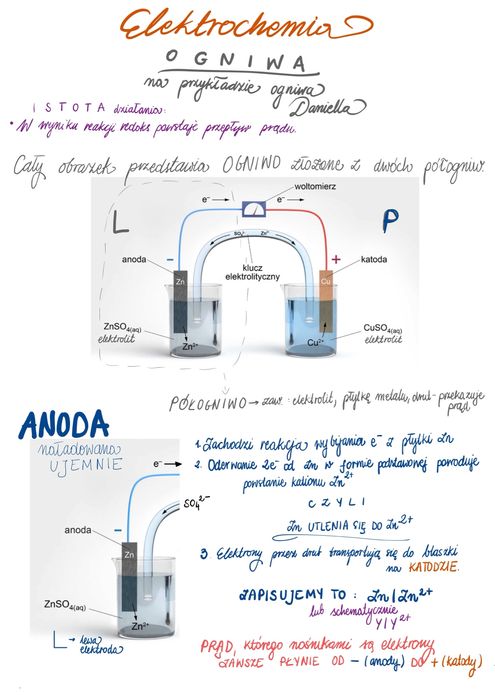 Elektrochemia
OGNIWA
na przykładzie ogniwa
Daniella
ISTOTA działania:
* W wyniku reakcji redoks powstaje przepływ prądu.
Cały obrazek przedstawia OGNIWO złożone z dwóch półogniw.
woltomierz
e⁻ → e⁻ →
L P
SO₄²⁻ Zn²⁺
anoda - klucz elektrolityczny + katoda
Zn Cu
ZnSO₄(aq) CuSO₄(aq)
elektrolit elektrolit
Zn²⁺ Cu²⁺
PÓŁOGNIWO → zaw.: elektrolit, płytkę metalu, drut - przekazuje
prąd
ANODA
naładowana
UJEMNIE
1. Zachodzi reakcja wybijania e⁻ z płytki Zn
2. Oderwanie 2e⁻ od Zn w formie podstawowej powoduje
powstanie kationu Zn²⁺
CZYLI
Zn UTLENIA SIĘ DO Zn²⁺
3. Elektrony przez drut transportują się do blaszki
na KATODZIE.
ZAPISUJEMY TO: Zn|Zn²⁺
lub schematycznie
Y|Y²⁺
e⁻ →
SO₄²⁻
-
anoda
Zn
ZnSO₄(aq)
Zn²⁺
L → lewa
elektroda
PRĄD, którego nośnikami są elektrony
ZAWSZE PŁYNIE OD - (anody) DO + (katody)